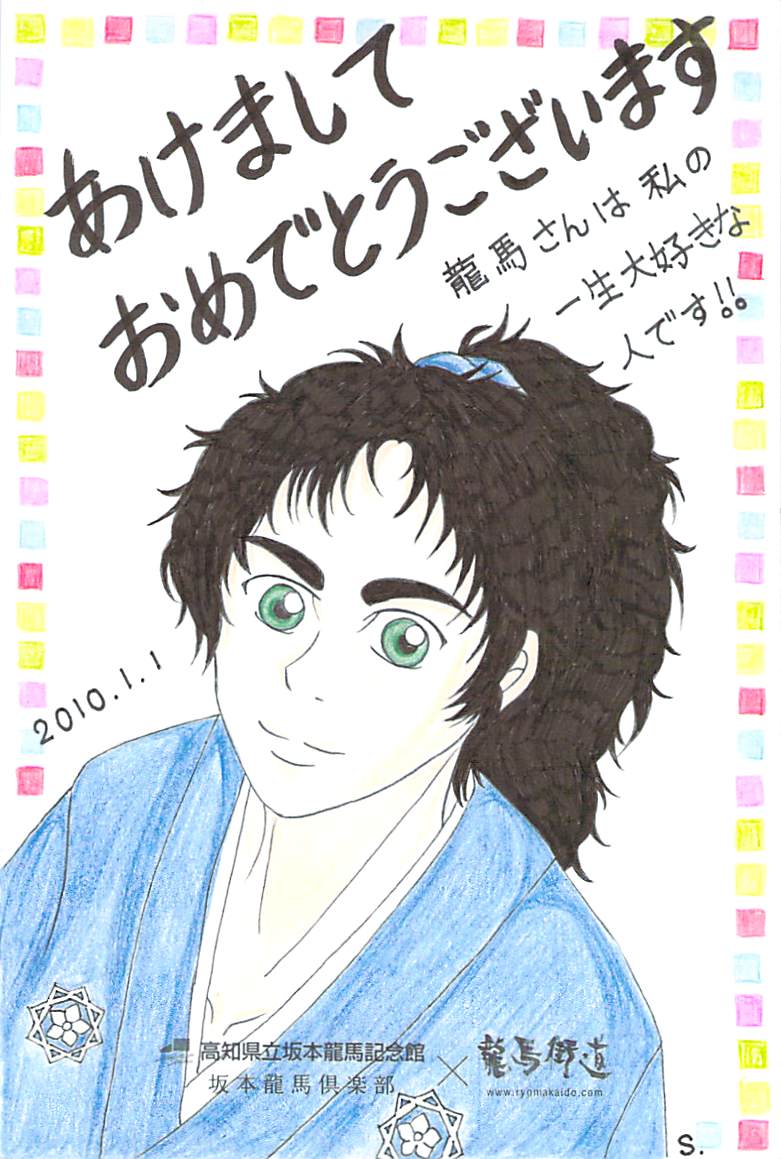 あけまして
おめでとうございます
龍馬さんは私の
一生大好きな
人です!!
2010.1.1
高知県立坂本龍馬記念館
坂本龍馬倶楽部
×
龍馬街道
www.ryomakaido.com
S.